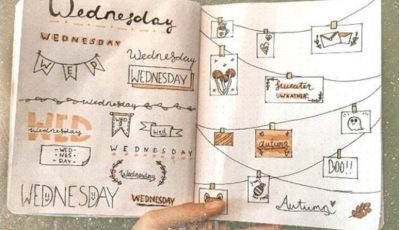 Wednesday
WEDNESDAY
WED
Wednesday
WEDNESDAY
Wednesday
WED
Wednesday
WED
Wed
-WED-
NES-
DAY-
WEDNESDAY
Wednesday
WEDNESDAY
WEDNESDAY
Sweater
WEATHER
autumn
BOO!!
Autumn